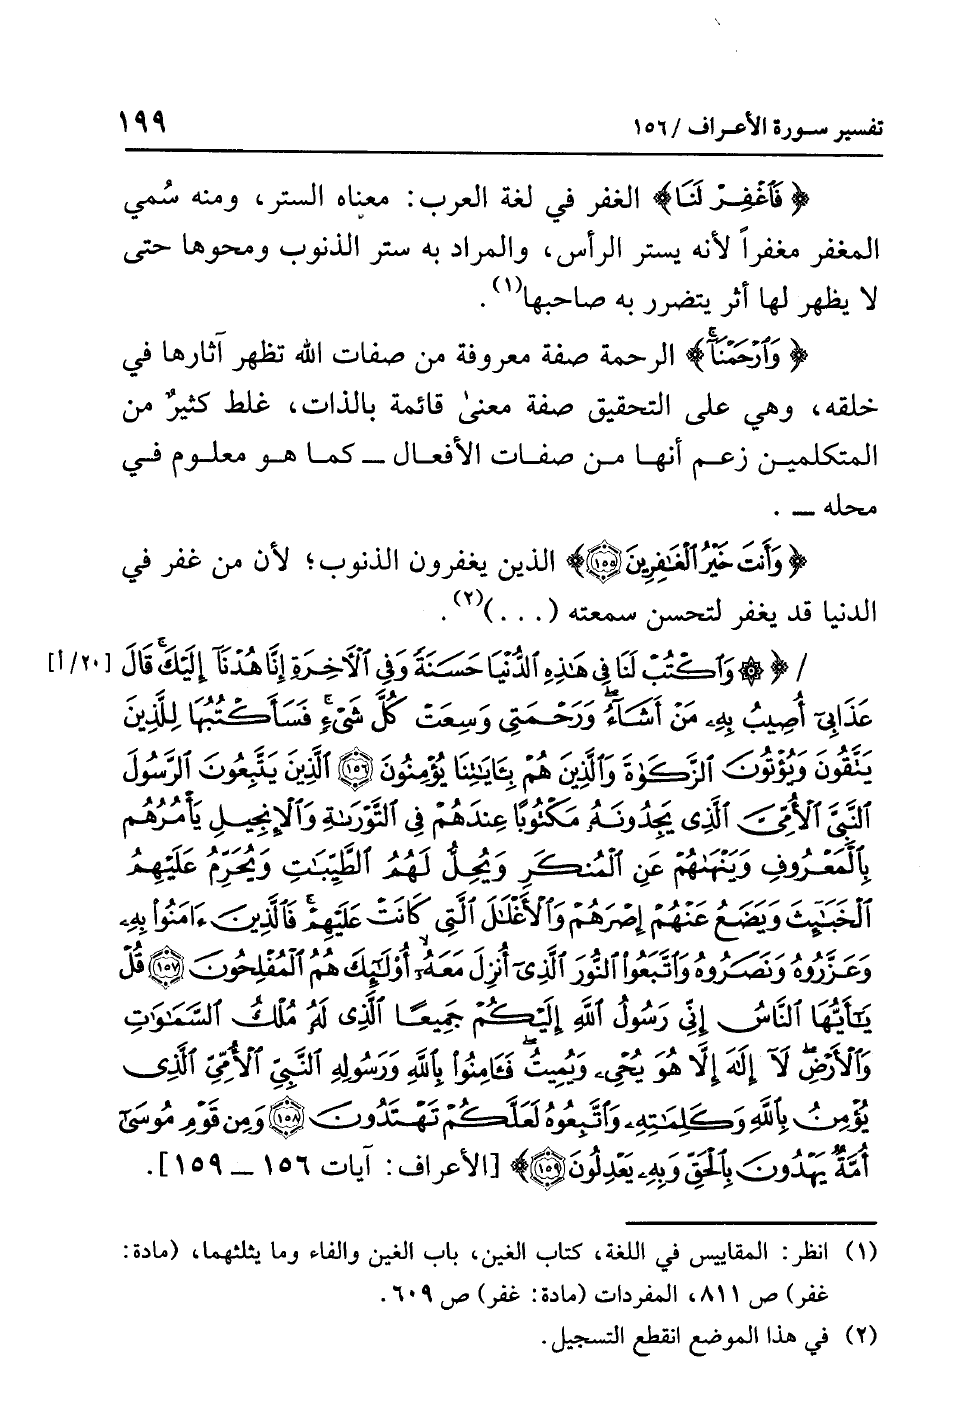 تفسير سورة الأعراف / ١٥٦ ١٩٩
﴿فَاغْفِرْ لَنَا﴾ الغفر في لغة العرب: معناه الستر، ومنه سُمي
المغفر مغفراً لأنه يستر الرأس، والمراد به ستر الذنوب ومحوها حتى
لا يظهر لها أثر يتضرر به صاحبها(١).
﴿وَارْحَمْنَا﴾ الرحمة صفة معروفة من صفات الله تظهر آثارها في
خلقه، وهي على التحقيق صفة معنىٰ قائمة بالذات، غلط كثيرٌ من
المتكلمين زعم أنها من صفات الأفعال ــ كما هو معلوم في
محله ــ .
﴿وَأَنتَ خَيْرُ الْغَافِرِينَ ١٥٥﴾ الذين يغفرون الذنوب؛ لأن من غفر في
الدنيا قد يغفر لتحسن سمعته (...)(٢).
/ ﴿۞ وَاكْتُبْ لَنَا فِي هَٰذِهِ الدُّنْيَا حَسَنَةً وَفِي الْآخِرَةِ إِنَّا هُدْنَا إِلَيْكَ ۚ قَالَ [٢٠/أ]
عَذَابِي أُصِيبُ بِهِ مَنْ أَشَاءُ ۖ وَرَحْمَتِي وَسِعَتْ كُلَّ شَيْءٍ ۚ فَسَأَكْتُبُهَا لِلَّذِينَ
يَتَّقُونَ وَيُؤْتُونَ الزَّكَوٰةَ وَالَّذِينَ هُم بِـَٔايَٰتِنَا يُؤْمِنُونَ ١٥٦ الَّذِينَ يَتَّبِعُونَ الرَّسُولَ
النَّبِيَّ الْأُمِّيَّ الَّذِي يَجِدُونَهُ مَكْتُوبًا عِندَهُمْ فِي التَّوْرَىٰةِ وَالْإِنجِيلِ يَأْمُرُهُم
بِالْمَعْرُوفِ وَيَنْهَىٰهُمْ عَنِ الْمُنكَرِ وَيُحِلُّ لَهُمُ الطَّيِّبَٰتِ وَيُحَرِّمُ عَلَيْهِمُ
الْخَبَٰٓئِثَ وَيَضَعُ عَنْهُمْ إِصْرَهُمْ وَالْأَغْلَٰلَ الَّتِي كَانَتْ عَلَيْهِمْ ۚ فَالَّذِينَ ءَامَنُوا بِهِ
وَعَزَّرُوهُ وَنَصَرُوهُ وَاتَّبَعُوا النُّورَ الَّذِي أُنزِلَ مَعَهُ ۙ أُولَٰئِكَ هُمُ الْمُفْلِحُونَ ١٥٧ قُلْ
يَٰٓأَيُّهَا النَّاسُ إِنِّي رَسُولُ اللَّهِ إِلَيْكُمْ جَمِيعًا الَّذِي لَهُ مُلْكُ السَّمَٰوَٰتِ
وَالْأَرْضِ ۖ لَا إِلَٰهَ إِلَّا هُوَ يُحْيِي وَيُمِيتُ ۖ فَـَٔامِنُوا بِاللَّهِ وَرَسُولِهِ النَّبِيِّ الْأُمِّيِّ الَّذِي
يُؤْمِنُ بِاللَّهِ وَكَلِمَٰتِهِ وَاتَّبِعُوهُ لَعَلَّكُمْ تَهْتَدُونَ ١٥٨ وَمِن قَوْمِ مُوسَىٰ
أُمَّةٌ يَهْدُونَ بِالْحَقِّ وَبِهِ يَعْدِلُونَ ١٥٩﴾ [الأعراف: آيات ١٥٦ ــ ١٥٩].
(١) انظر: المقاييس في اللغة، كتاب الغين، باب الغين والفاء وما يثلثهما، (مادة:
غفر) ص ٨١١، المفردات (مادة: غفر) ص ٦٠٩.
(٢) في هذا الموضع انقطع التسجيل.